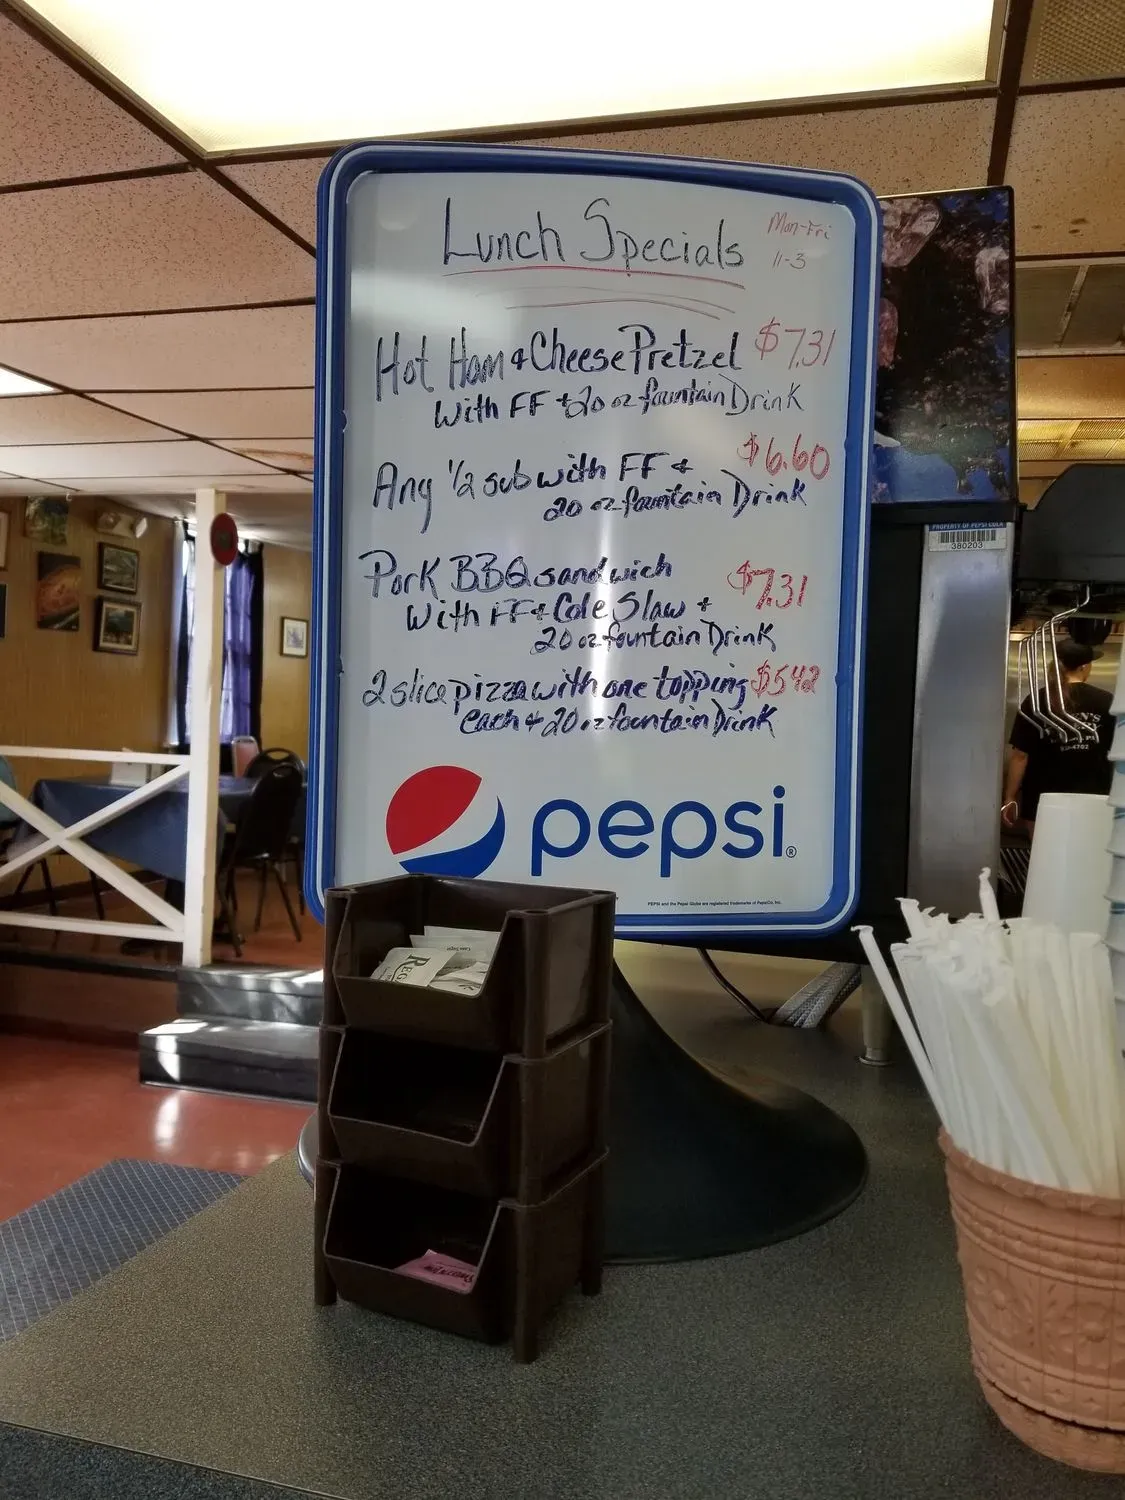 Lunch Specials
Mon-Fri
11-3
Hot Ham & Cheese Pretzel $7.31
With FF + 20 oz fountain Drink
Any 1/2 sub with FF + $6.60
20 oz fountain Drink
Pork BBQ sandwich
With FF + Cole Slaw + $7.31
20 oz fountain Drink
2 slice pizza with one topping $5.42
each + 20 oz fountain Drink
pepsi®
PEPSI and the Pepsi Globe are registered trademarks of PepsiCo, Inc.
PROPERTY OF PEPSI COLA
380203